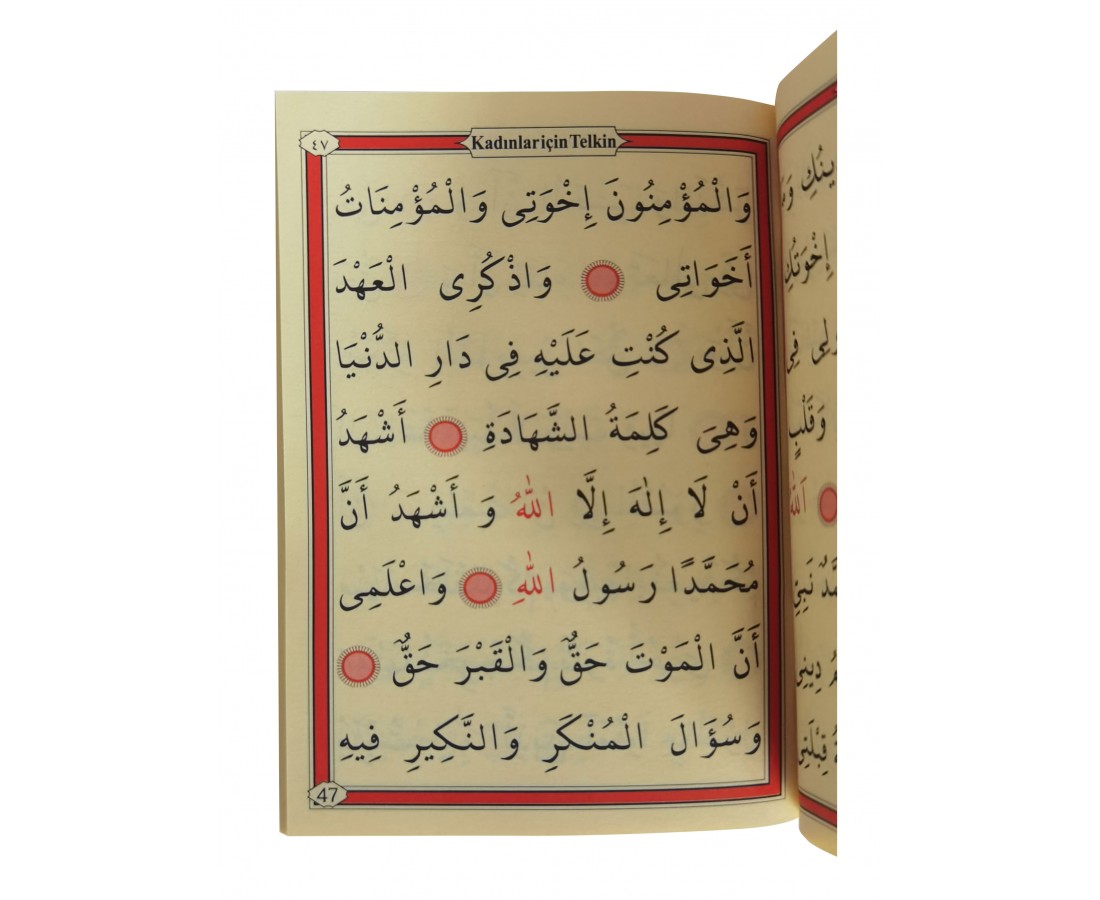 ٤٧
Kadınlar için Telkin
وَالْمُؤْمِنُونَ إِخْوَتِى وَالْمُؤْمِنَاتُ
أَخَوَاتِى وَاذْكُرِى الْعَهْدَ
الَّذِى كُنْتِ عَلَيْهِ فِى دَارِ الدُّنْيَا
وَهِىَ كَلِمَةُ الشَّهَادَةِ أَشْهَدُ
أَنْ لَا إِلٰهَ إِلَّا اللّٰهُ وَ أَشْهَدُ أَنَّ
مُحَمَّدًا رَسُولُ اللّٰهِ وَاعْلَمِى
أَنَّ الْمَوْتَ حَقٌّ وَالْقَبْرَ حَقٌّ
وَسُؤَالَ الْمُنْكَرِ وَالنَّكِيرِ فِيهِ
47
إِخْوَتُكِ
وَقَلْبٍ
اَللّٰهُ
دِينِى